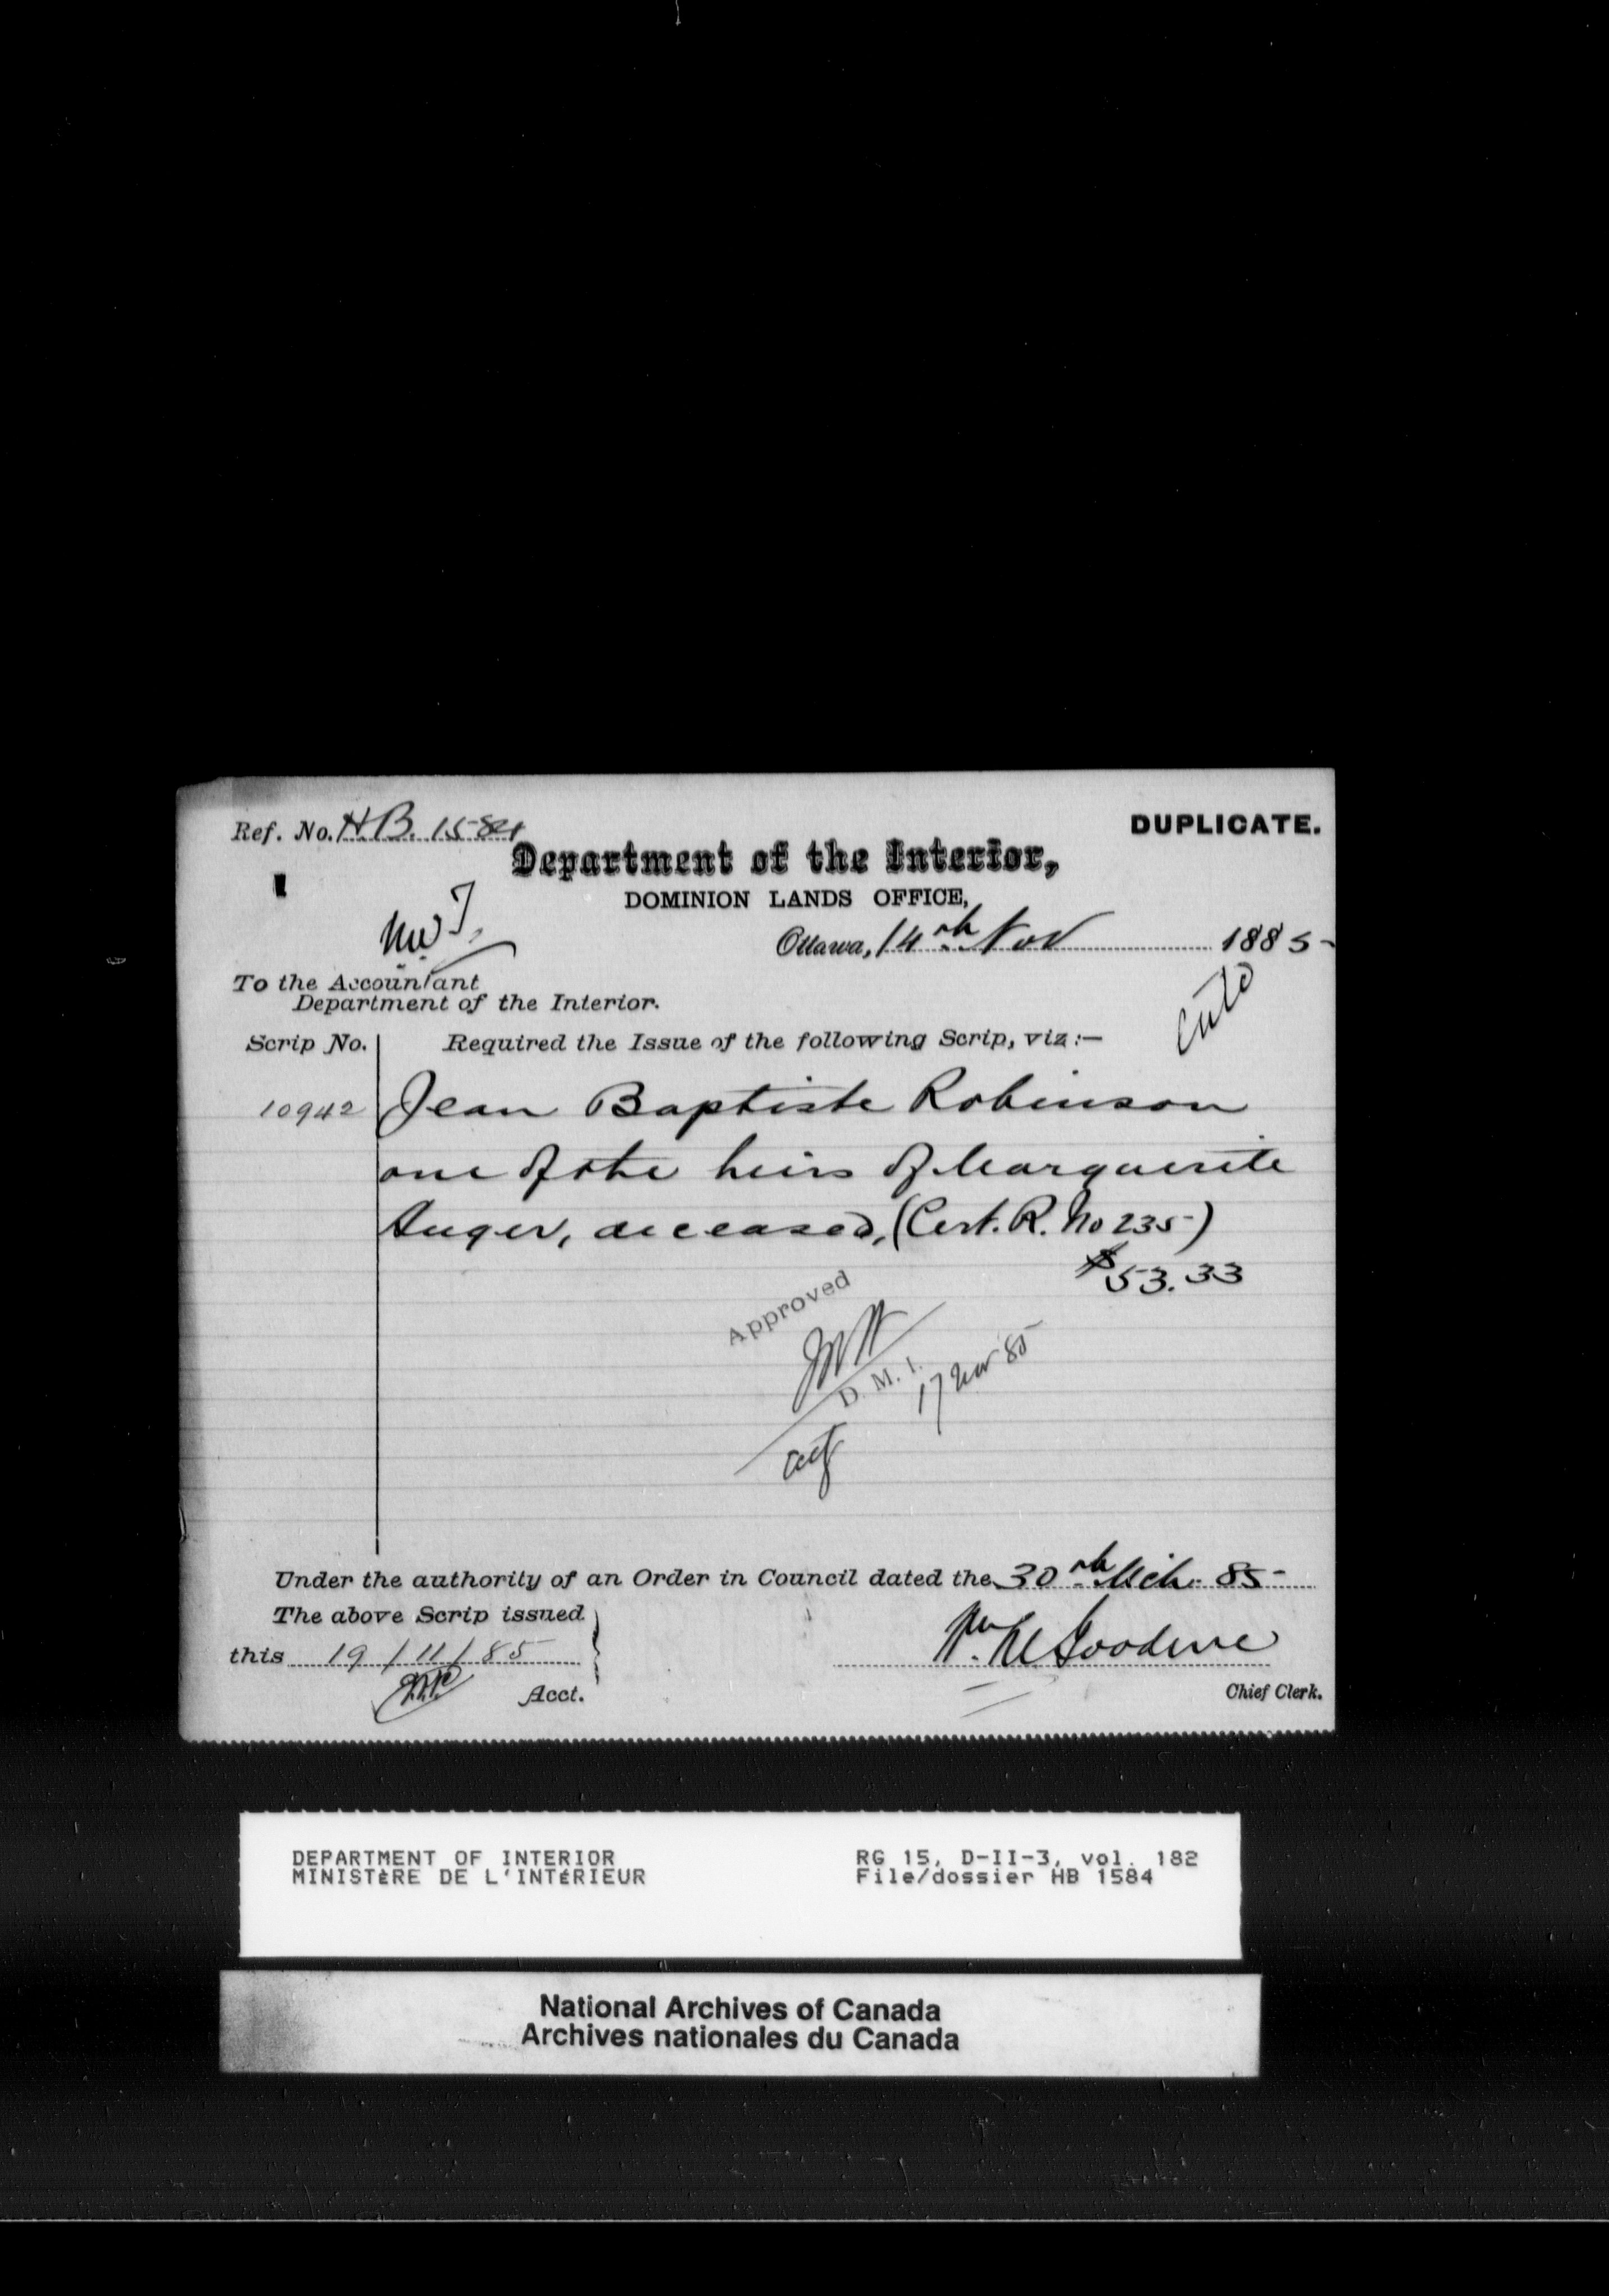 Ref. No. HB. 1584
DUPLICATE.
Department of the Interior,
DOMINION LANDS OFFICE,
N.W.T.
Ottawa, 14th Nov 1885
To the Accountant
Department of the Interior.
Scrip No. Required the Issue of the following Scrip, viz:—
10942 Jean Baptiste Robinson
one of the heirs of Marguerite
Auger, deceased, (Cert. R. No 235)
$53.33
Approved
D. M. I.
17 Nov 85
Under the authority of an Order in Council dated the 30th Mch. 85
The above Scrip issued
this 19/11/85
Acct.
Chief Clerk.
DEPARTMENT OF INTERIOR
MINISTÈRE DE L'INTÉRIEUR
RG 15, D-II-3, vol. 182
File/dossier HB 1584
National Archives of Canada
Archives nationales du Canada